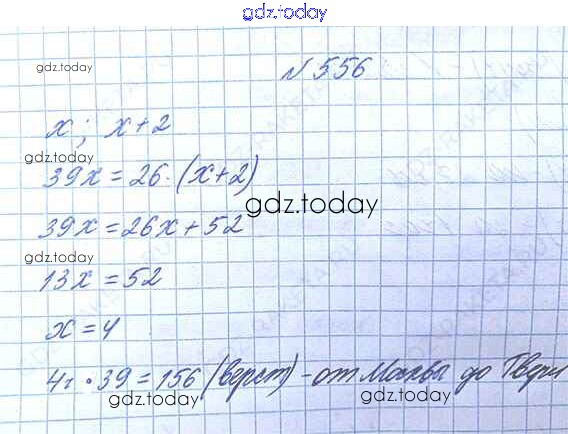 gdz.today
gdz.today
№ 556
x; x+2
gdz.today
39x = 26·(x+2)
gdz.today
39x = 26x + 52
gdz.today
13x = 52
x = 4
4·39 = 156 (верст) - от Москвы до Твери
gdz.today
gdz.today